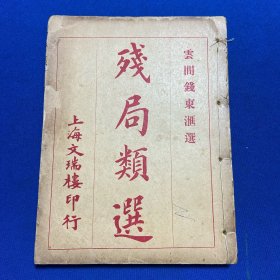 雲間錢東滙選
殘局類選
上海文瑞樓印行